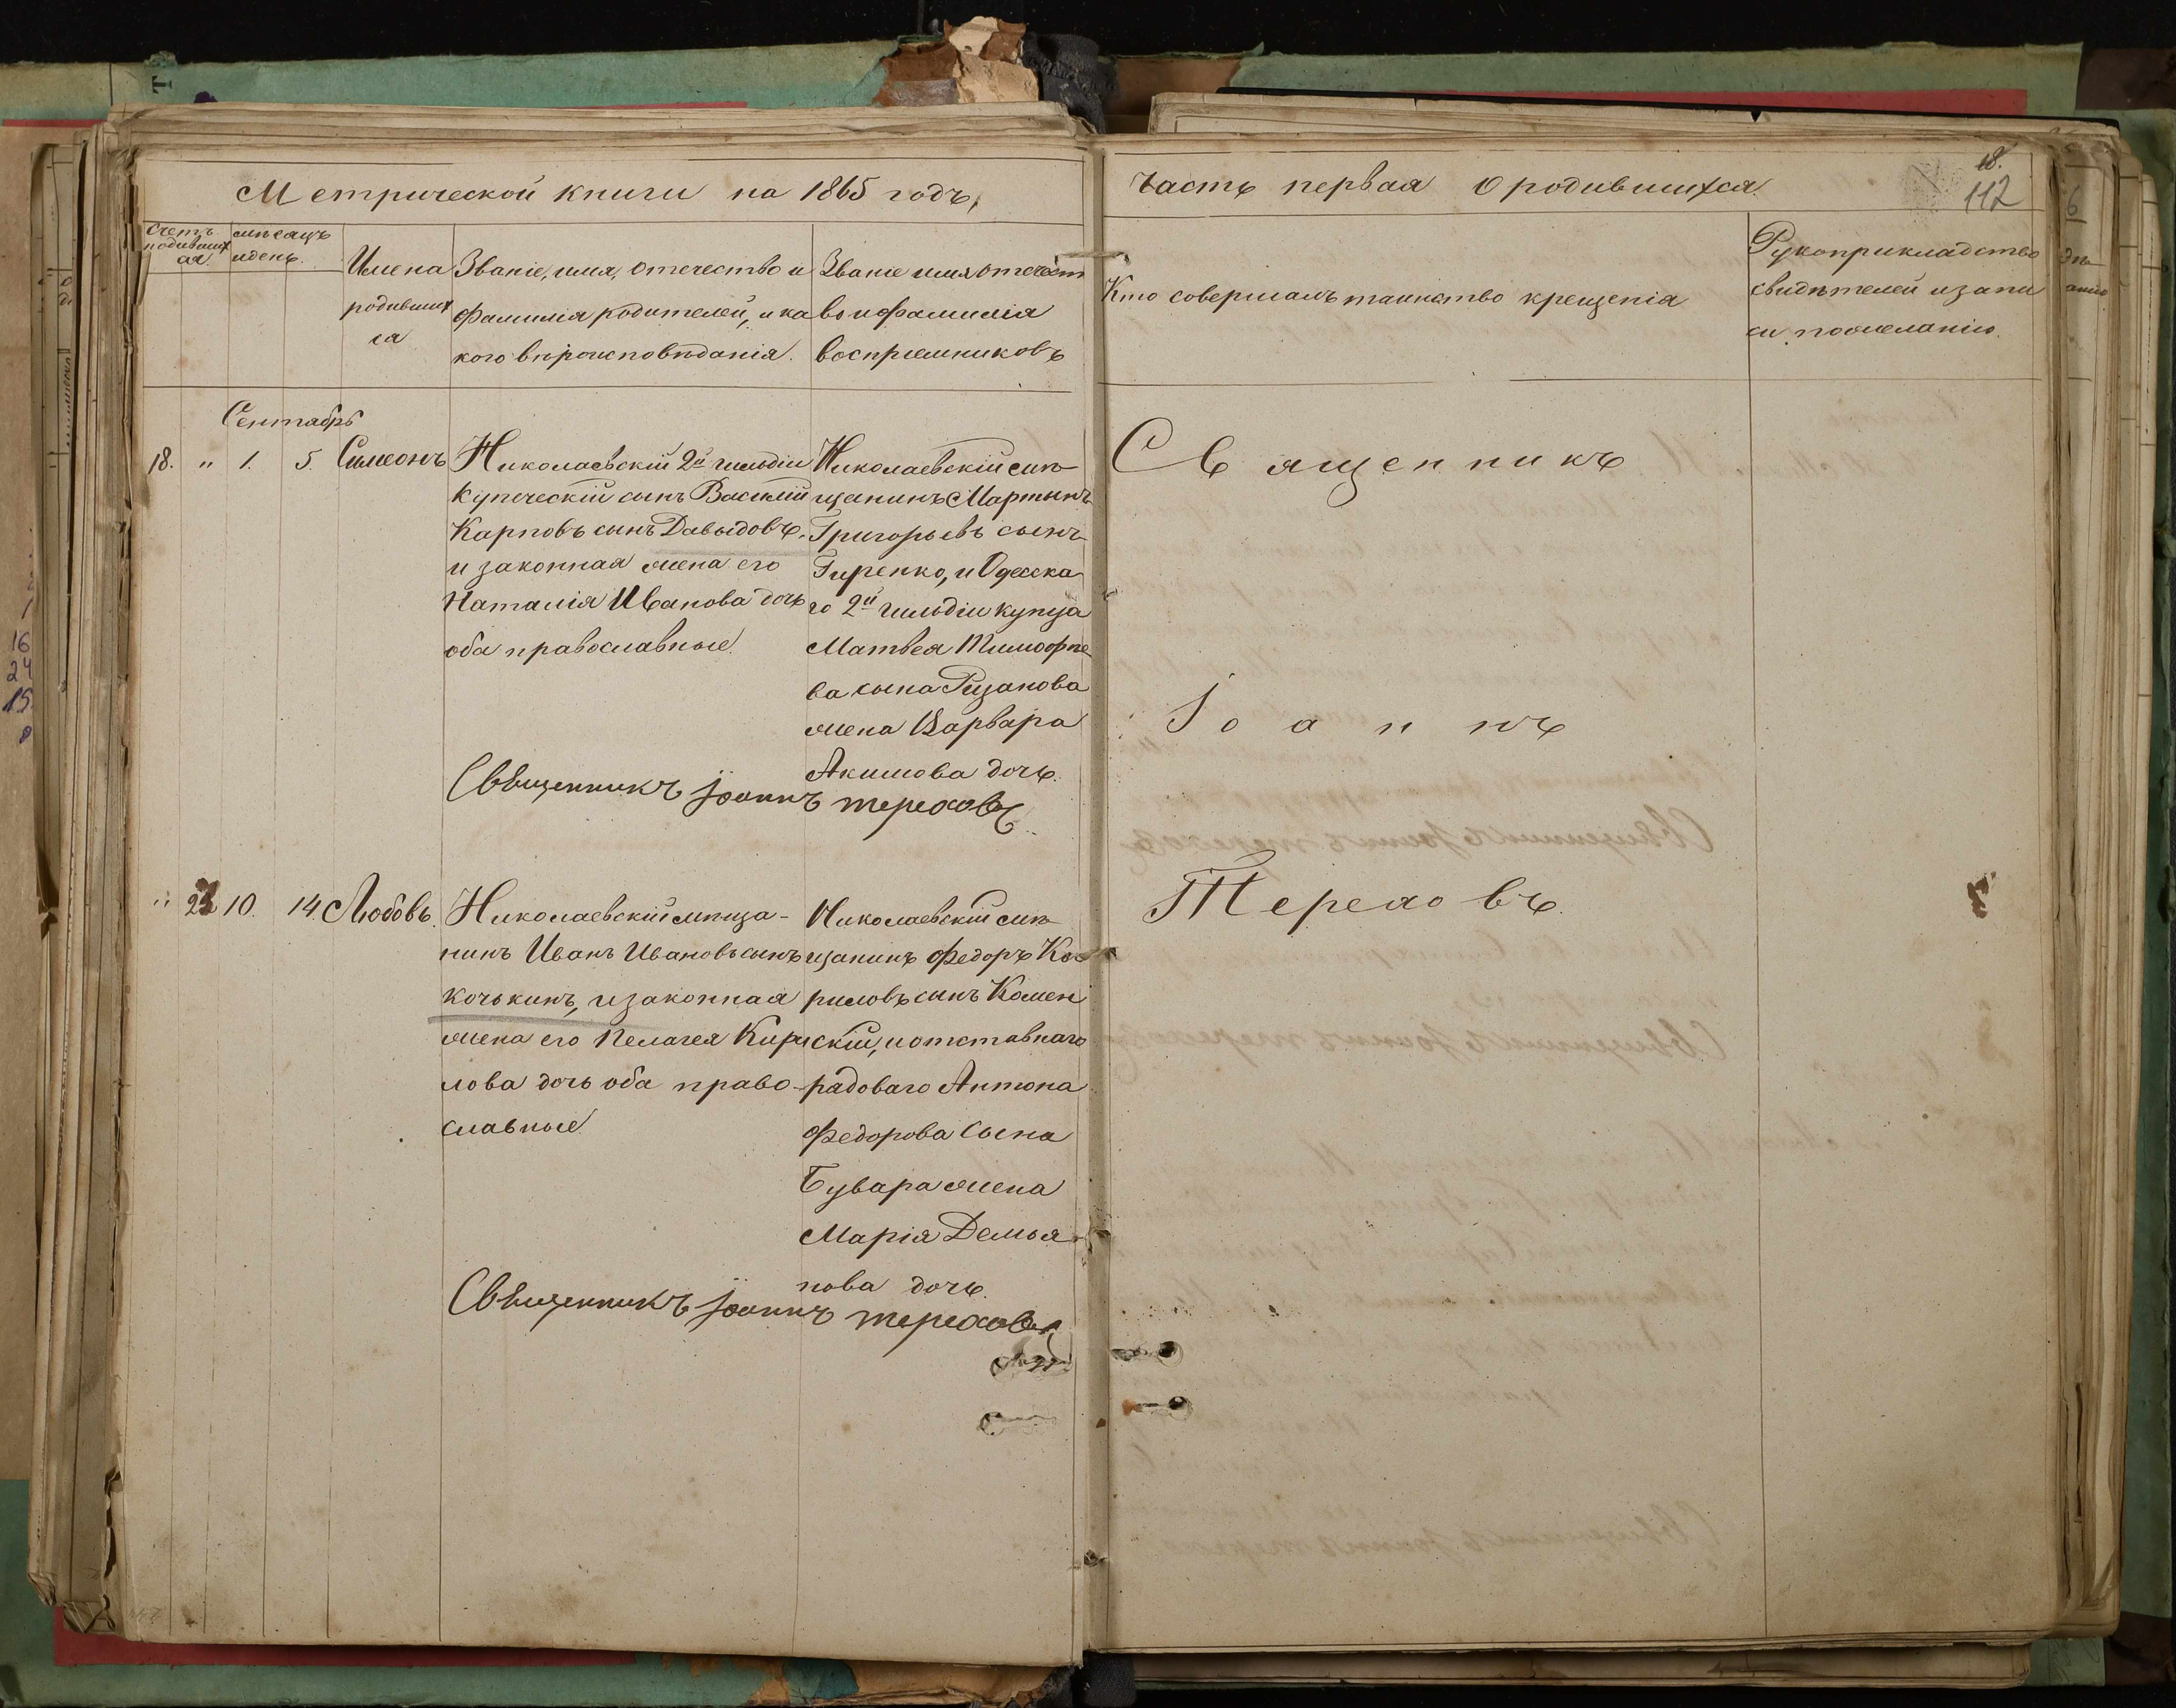 Метрической книги на 1865 годъ,
часть первая о родившихся.
18.
112
Счетъ родившихся.
мѣсяцъ и день.
Имена родившихся
Званіе, имя, отечество и
фамилія родителей, и ка
кого вѣроисповѣданія.
Званіе имя отечест
во и фамилія
воспріемниковъ
Кто совершалъ таинство крещенія
Рукоприкладство
свидѣтелей изапи
си пожеланію.
Сентябрь
18. " 1. 5. Симеонъ
Николаевскій 2й гильдіи
купеческій сынъ Василій
Карповъ сынъ Давыдовъ,
и законная жена его
Наталія Иванова дочь
оба православные.
Николаевскій мѣ
щанинъ Мартынъ
Григорьевъ сынъ
Гиренко, и Одесска
го 2й гильдіи купца
Матвея Тимофѣе
ва сына Ризанова
жена Варвара
Акимова дочь.
Священникъ Іоаннъ Тереховъ
Священникъ
Іоаннъ
Тереховъ.
" 23 10. 14. Любовь.
Николаевскій мѣща-
нинъ Иванъ Ивановъ сынъ
Кочькинъ, и законная
жена его Пелагея Кири
лова дочь оба право-
славные.
Николаевскій мѣ
щанинъ Федоръ Ки
риловъ сынъ Камен
скій, и отставнаго
радоваго Антона
Федорова сына
Бувара жена
Марія Демья
нова дочь.
Священникъ Іоаннъ Тереховъ
16
24
15
8
6